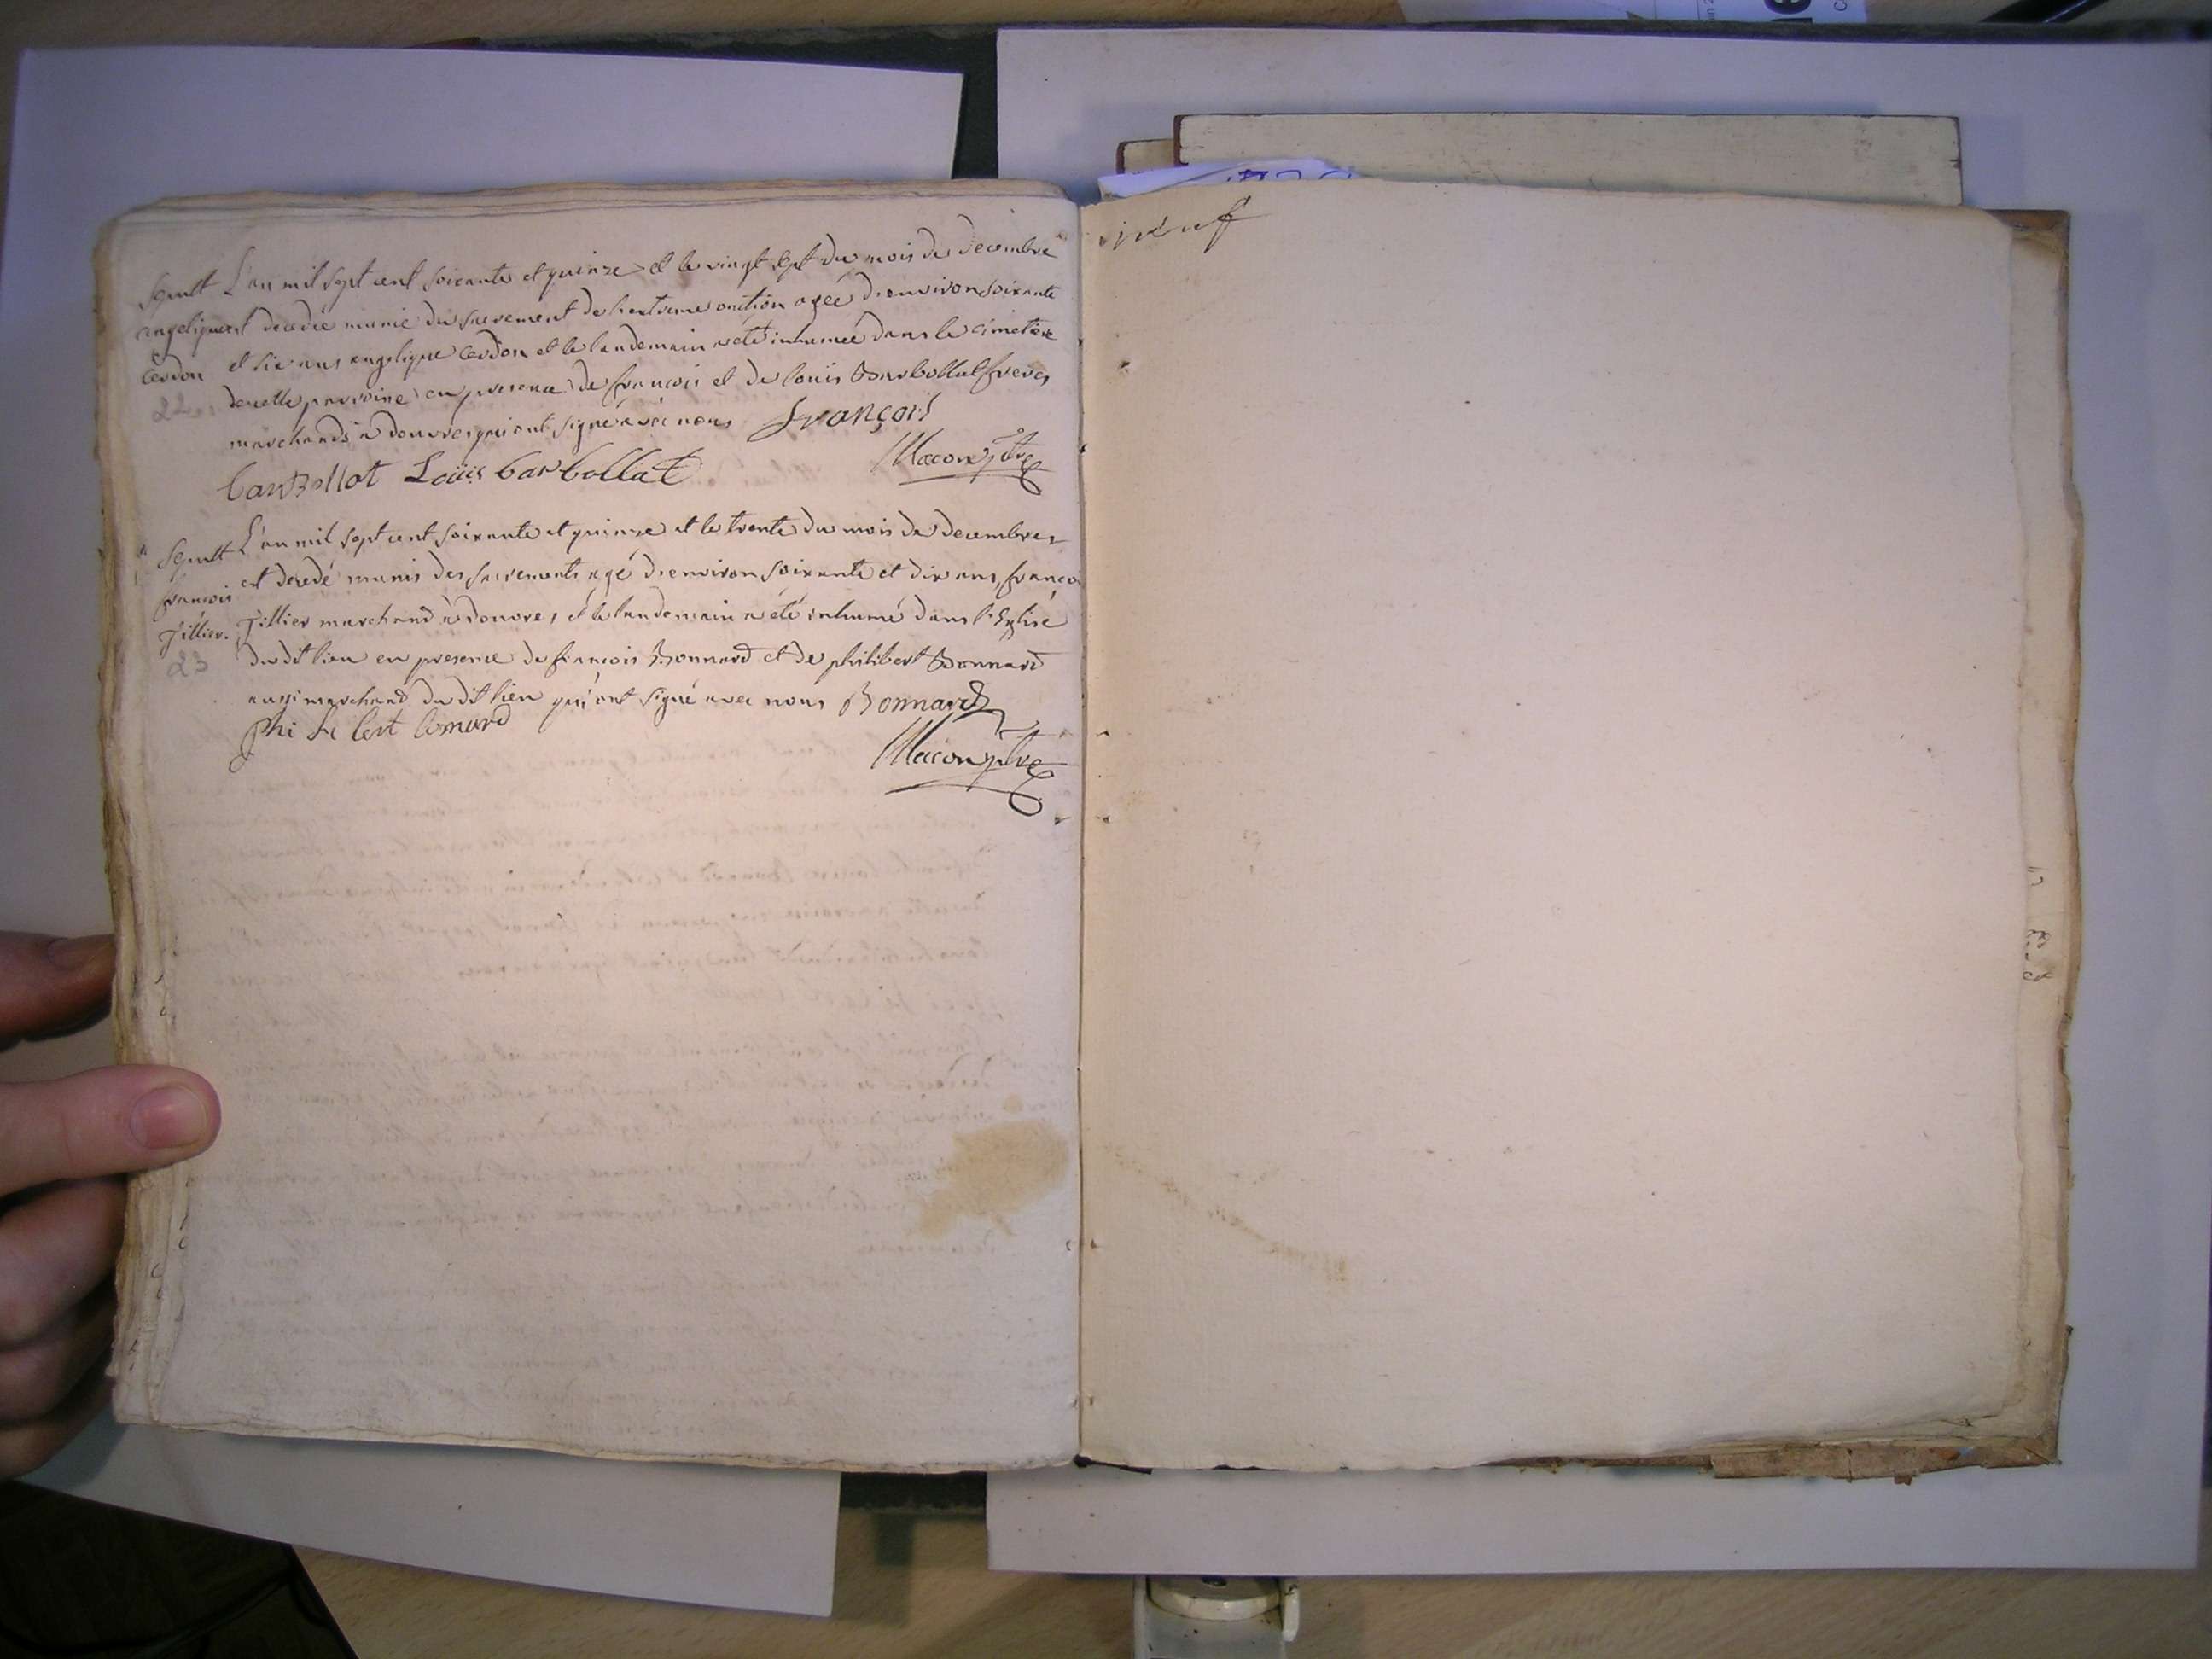 Sepult L'an mil sept cent soixante et quinze et le vingt sept du mois de decembre
angelique est decedée munie du sacrement de l'extreme onction agée d'environ soixante
Cerdon et six ans angelique Cerdon et le landemain a eté inhumée dans le cimetiere
22 de cette parroisse en presence de françois et de louis Barbollat freres
marchands a douvres qui ont signé avec nous françois
barbollat Louis barbollat Macon ptre
Sepult L'an mil sept cent soixante et quinze et le trente du mois de decembre
est decedé munis des sacrements agé d'environ soixante et dix ans, françois
françois
Tillier. Tillier marchand a douvres, et le landemain a eté inhumé dans l'Eglise
23 du dit lieu en presence de françois Bonnard et de philibert Bonnard
aussi marchand du dit lieu qui ont signé avec nous Bonnard
phi li bert bonard
Macon ptre